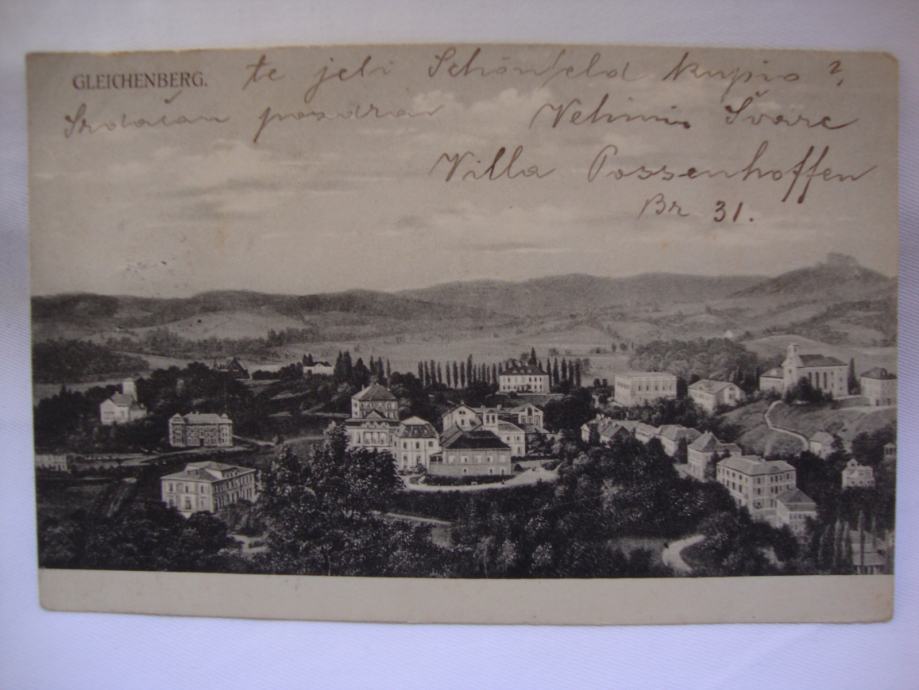 GLEICHENBERG.
te jeli Schönfeld kupio?
Srdačan pozdrav
Velimir Švarc
Villa Possenhoffen
Br 31.